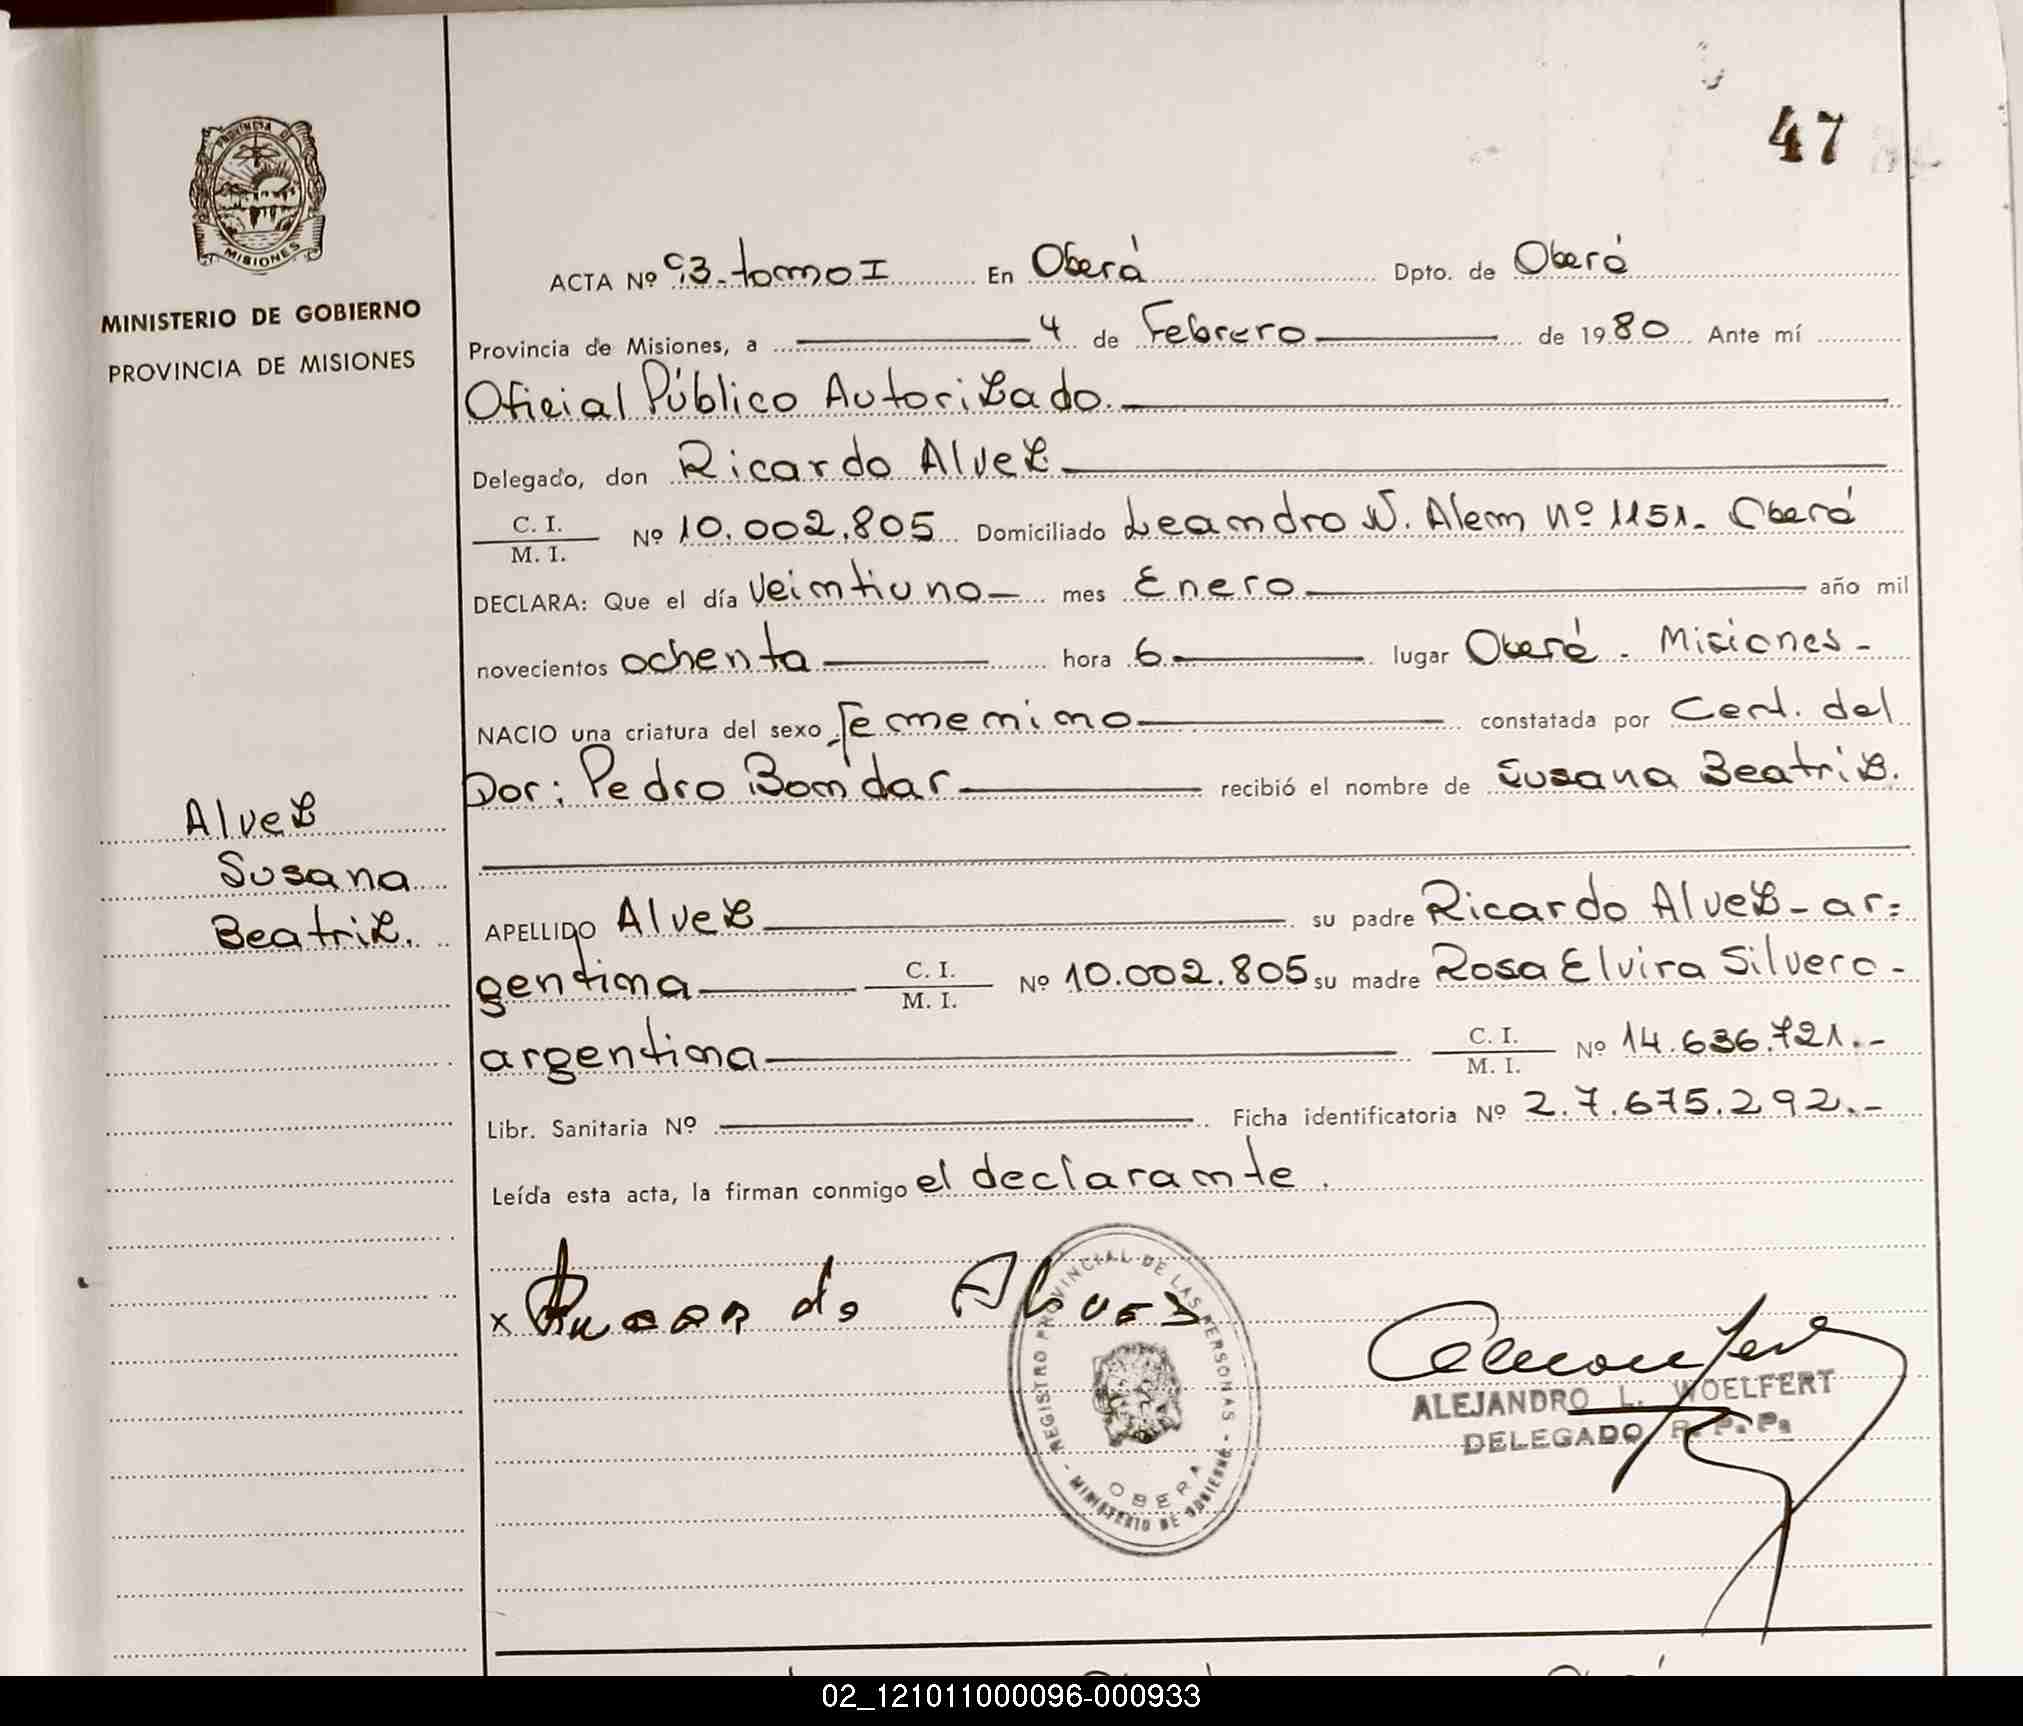 47
PROVINCIA DE
MISIONES
MINISTERIO DE GOBIERNO
PROVINCIA DE MISIONES
ACTA Nº 93-tomo I En Oberá Dpto. de Oberá
Provincia de Misiones, a 4 de Febrero de 1980 Ante mí
Oficial Público Autorizado.
Delegado, don Ricardo Alvez
C. I.
M. I.
Nº 10.002.805 Domiciliado Leandro N. Alem Nº 1151. Oberá
DECLARA: Que el día Veintiuno mes Enero año mil
novecientos ochenta hora 6 lugar Oberá - Misiones -
NACIO una criatura del sexo femenino constatada por Cert. del
Dor: Pedro Bondar recibió el nombre de Susana Beatriz.
Alvez
Susana
Beatriz.
APELLIDO Alvez su padre Ricardo Alvez - ar=
gentina C. I. M. I. Nº 10.002.805 su madre Rosa Elvira Silvero -
argentina C. I. M. I. Nº 14.636.721.-
Libr. Sanitaria Nº Ficha identificatoria Nº 2.7.675.292.-
Leída esta acta, la firman conmigo el declarante.
x Ricardo Alves
REGISTRO PROVINCIAL DE LAS PERSONAS
OBERA
MINISTERIO DE GOBIERNO
ALEJANDRO L. WOELFERT
DELEGADO R. P. P.
02_121011000096-000933